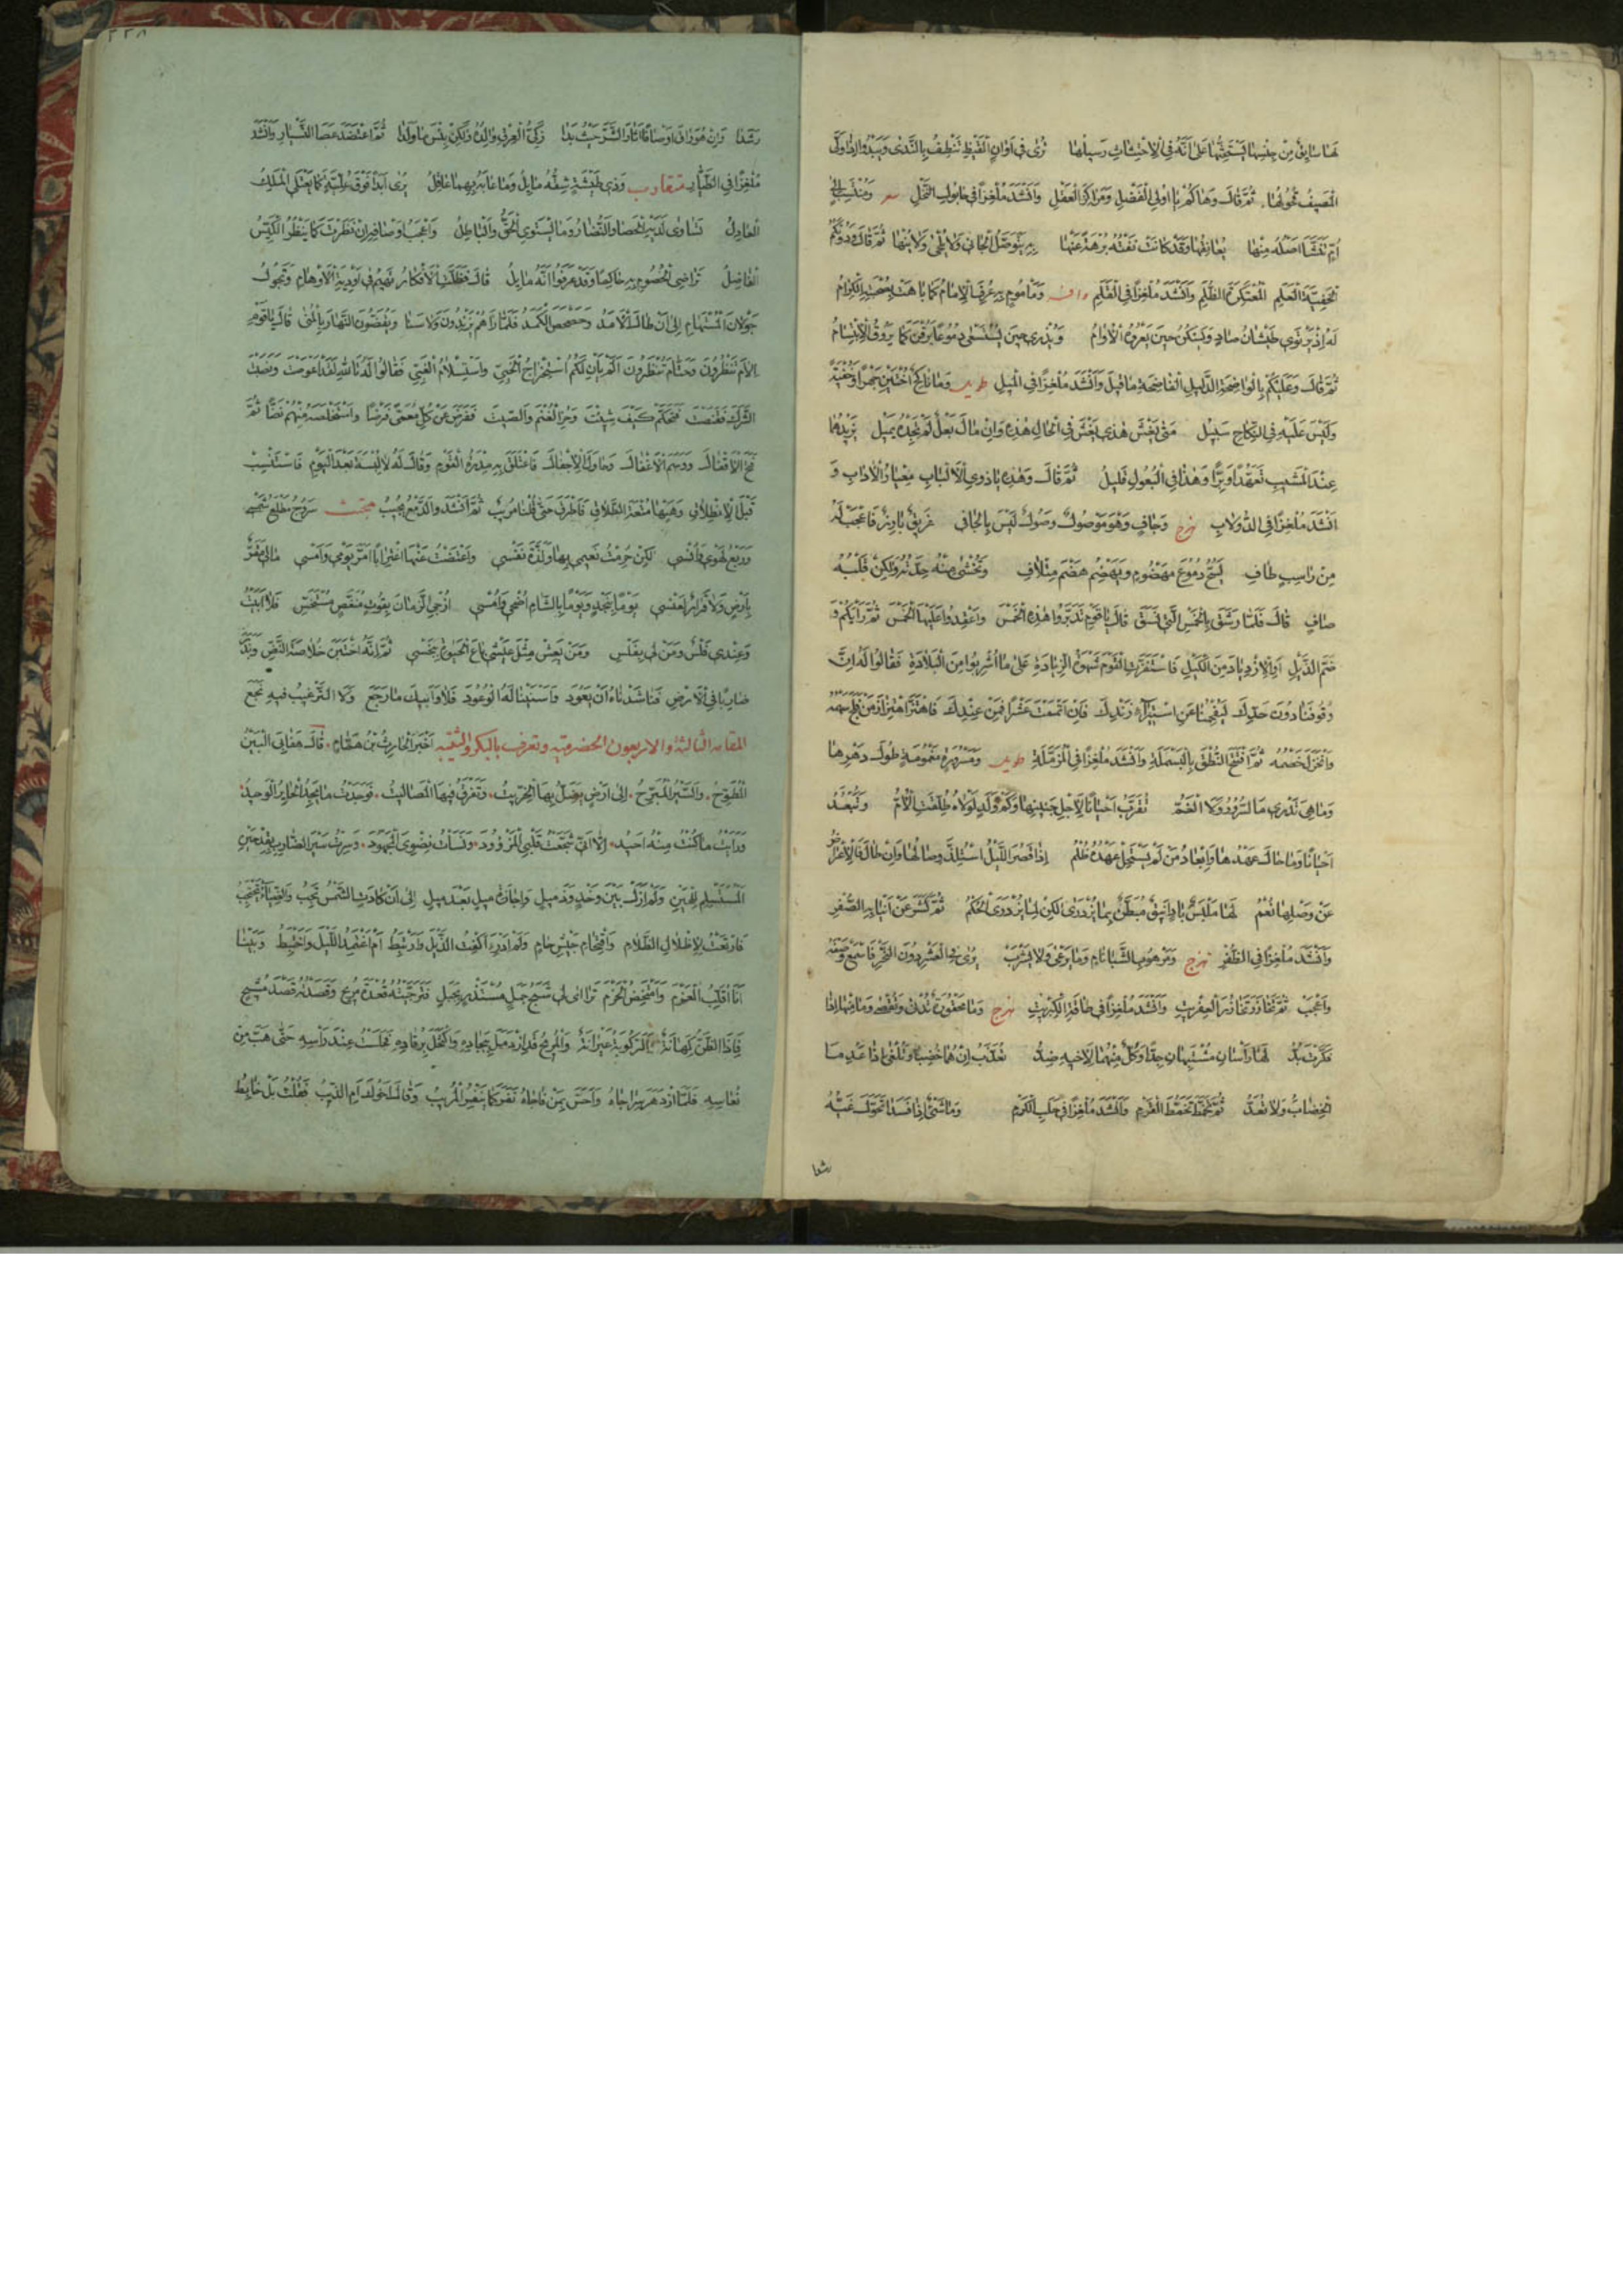 لها سايق من جنسها يستحثها على انه في الاحتثاث رسيلها ترى في اوان القيظ تنطف بالندى ويبدو اذا ولى
المصيف قحولها ثم قال وهاكم يا اولي الفضل ومراكز العقل وانشد ملغزا في حابول النخل ومنتسب الى
ام تنشا اصله منها يعانقها وقد كانت نفته برهة عنها به يتوصل الجاني ولا يلحى ولا ينها ثم قال ودونكم
الخفية العلم المعتكرة الظلم وانشد ملغزا في القلم وافر وماموم به عرف الامام كما باهت بصحبته الكرام
له اذ يرتوي طيشان صاد ويسكن حين يعروه الاوام ويذري حين يستسعى دموعا يرقن كما يروق الابتسام
ثم قال وعليكم بالواضحة الدليل الفاضحة ما قيل وانشد ملغزا في الميل طويل وما ناكح اختين جهرا وخفية
وليس عليه في النكاح سبيل متى يغش هذي يغش في الحال هذه وان مال بعل لم تجده يميل يزيدهما
عند المشيب تعهدا وبرا وهذا في البعول قليل ثم قال وهذه يا ذوي الالباب معيار الاداب و
انشد ملغزا في الدولاب هزج وجاف وهو موصول وصول ليس بالجافي غريق بارز فاعجب له
من راسب طاف يسح دموع مهضوم ويهضم هضم متلاف وتخشى منه حدته ولكن قلبه
صاف قال فلما رشق بالخمس التي نسق قال يا قوم تدبروا هذه الخمس واعقدوا عليها الخمس ثم رايكم و
ضم الذيل او الازدياد من الكيل فاستفزت القوم شهوة الزيادة على ما اشربوا من البلادة فقالوا له ان
وقوفنا دون حدك ليفحمنا عن استبراء زندك فان اتممت عشرا فمن عندك فاهتز اهتزاز من فلج سهمه
وانخزل خصمه ثم افتتح النطق بالبسملة وانشد ملغزا في المزملة طويل ومسرورة مغمومة طول دهرها
وما هي تدري ما السرور ولا الغم تقرب احيانا لاجل جنينها وكم ولد لولاه طلقت الام وتبعد
احيانا وما حال عهدها وابعاد من لم يستحل عهده ظلم اذا قصر الليل استلذ وصالها وان طال فالاعراض
عن وصلها نعم لها ملبس باد انيق مبطن بما يزدرى لكن لما يزدرى الحكم ثم كشر عن انيابه الصفر
وانشد ملغزا في الظفر هزج ومرهوب الشبا نام وما يرعى ولا يشرب يرى في العشر دون النحر فاسمع وصفه
واعجب ثم تخازر تخازر العفريت وانشد ملغزا في طاقة الكبريت هزج وما محقورة تدنى وتقصى وما منها اذا
فكرت بد لها راسان مشتبهان جدا وكل منهما لاخيه ضد تعذب ان هما خضبا وتلغى اذا عدما
الخضاب ولا تعد ثم تخمط تخمط القرم وانشد ملغزا في حلب الكرم وما شيء اذا فسدا تحول غيه
رشدا
رشدا وان هو راق اوصافا اثار الشر حيث بدا زكي العرق والده ولكن بئس ما ولدا ثم اعتضد عصا التسيار وانشد
ملغزا في الطيار متقارب وذي طيشة شقه مايل وما عابه بهما عاقل يرى ابدا فوق علية كما يعتلي الملك
العادل تساوى لديه الحصا والنضار وما يستوي الحق والباطل واعجب اوصافه ان نظرت كما ينظر الكيس
الفاضل تراضي الخصوم به حاكما وقد عرفوا انه مايل قال فظلت الافكار تهيم في اودية الاوهام وتجول
جولان المستهام الى ان طال الامد وحصحص الكمد فلما راهم يزندون ولا سنا ويقضون النهار بالمنى قال يا قوم
الام تنظرون وحتام تنظرون الم يان لكم استخراج الخبي واستسلام الغبي فقالوا له تالله لقد اعوصت ونصبت
الشرك فقنصت فتحكم كيف شئت وحز الغنم والصيت ففرض عن كل معمى فرضا واستخلصه منهم نضا ثم
فتح الاقفال ووسم الاغفال وحاول الاجفال فاعتلق به مدره القوم وقال له لا لبسة بعد اليوم فاستنسب
قبل الانطلاق وهبها متعة الطلاق فاطرق حتى قلنا مريب ثم انشد والدمع مجيب مجتث سروج مطلع شمسي
وربع لهوي وانسي لكن حرمت نعيمي بها ولذة نفسي واعتضت عنها اغترابا امر يومي وامسي مالي مقر
بارض ولا قرار لعنسي يوما بنجد ويوما بالشام اضحي وامسي ازجي الزمان بقوت منغص مستخس فلا ابيت
وعندي فلس ومن لي بفلس ومن يعش مثل عيشي باع الحيوة ببخس ثم انه اختبن خلاصة النض وند
ضاربا في الارض فناشدناه ان يعود واسنينا له الوعود فلا وابيك ما رجع ولا الترغيب فيه نجع
المقامة الثالثة والاربعون الحضرمية وتعرف بالبكر والثيبة اخبر الحارث بن همام قال هفا بي البين
المطوح والسير المبرح الى ارض يضل بها الخريت وتفرق فيها المصاليت فوجدت ما يجد الحاير الوحيد
ورايت ما كنت منه احيد الا اني شجعت قلبي المزؤود ونسات نضوي المجهود وسرت سير الضارب بقدحين
المستسلم للحين ولم ازل بين وخد وذميل واجازة ميل بعد ميل الى ان كادت الشمس تجب والضياء يحتجب
فارتعت لاظلال الظلام واقتحام جيش حام ولم ادر ااكفت الذيل وارتبط ام اعتمد الليل واختبط وبينا
انا اقلب العزم وامتخض الحزم تراءى لي شبح جمل مستذر بجبل فترجيته قعدة مريح وقصدته قصد مشيح
فاذا الظن كهانة والركوبة عيرانة والمريح قد ازدمل ببجاده واكتحل برقاده فجلست عند راسه حتى هب من
نعاسه فلما ازدهر سراجاه واحس بمن فاجاه نفر كما ينفر المريب وقال اخوك ام الذيب فقلت بل خابط